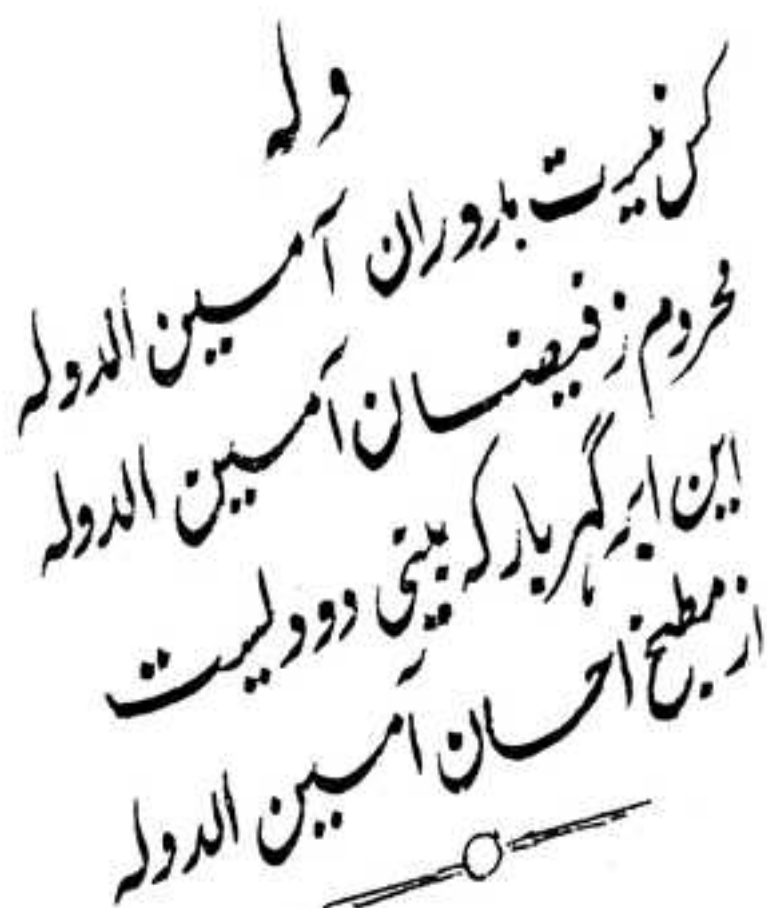 وله
کس نیست بدوران آمین الدوله
محروم ز فیضان آمین الدوله
این ابر گهر بار که بینی دودیست
از مطبخ احسان آمین الدوله